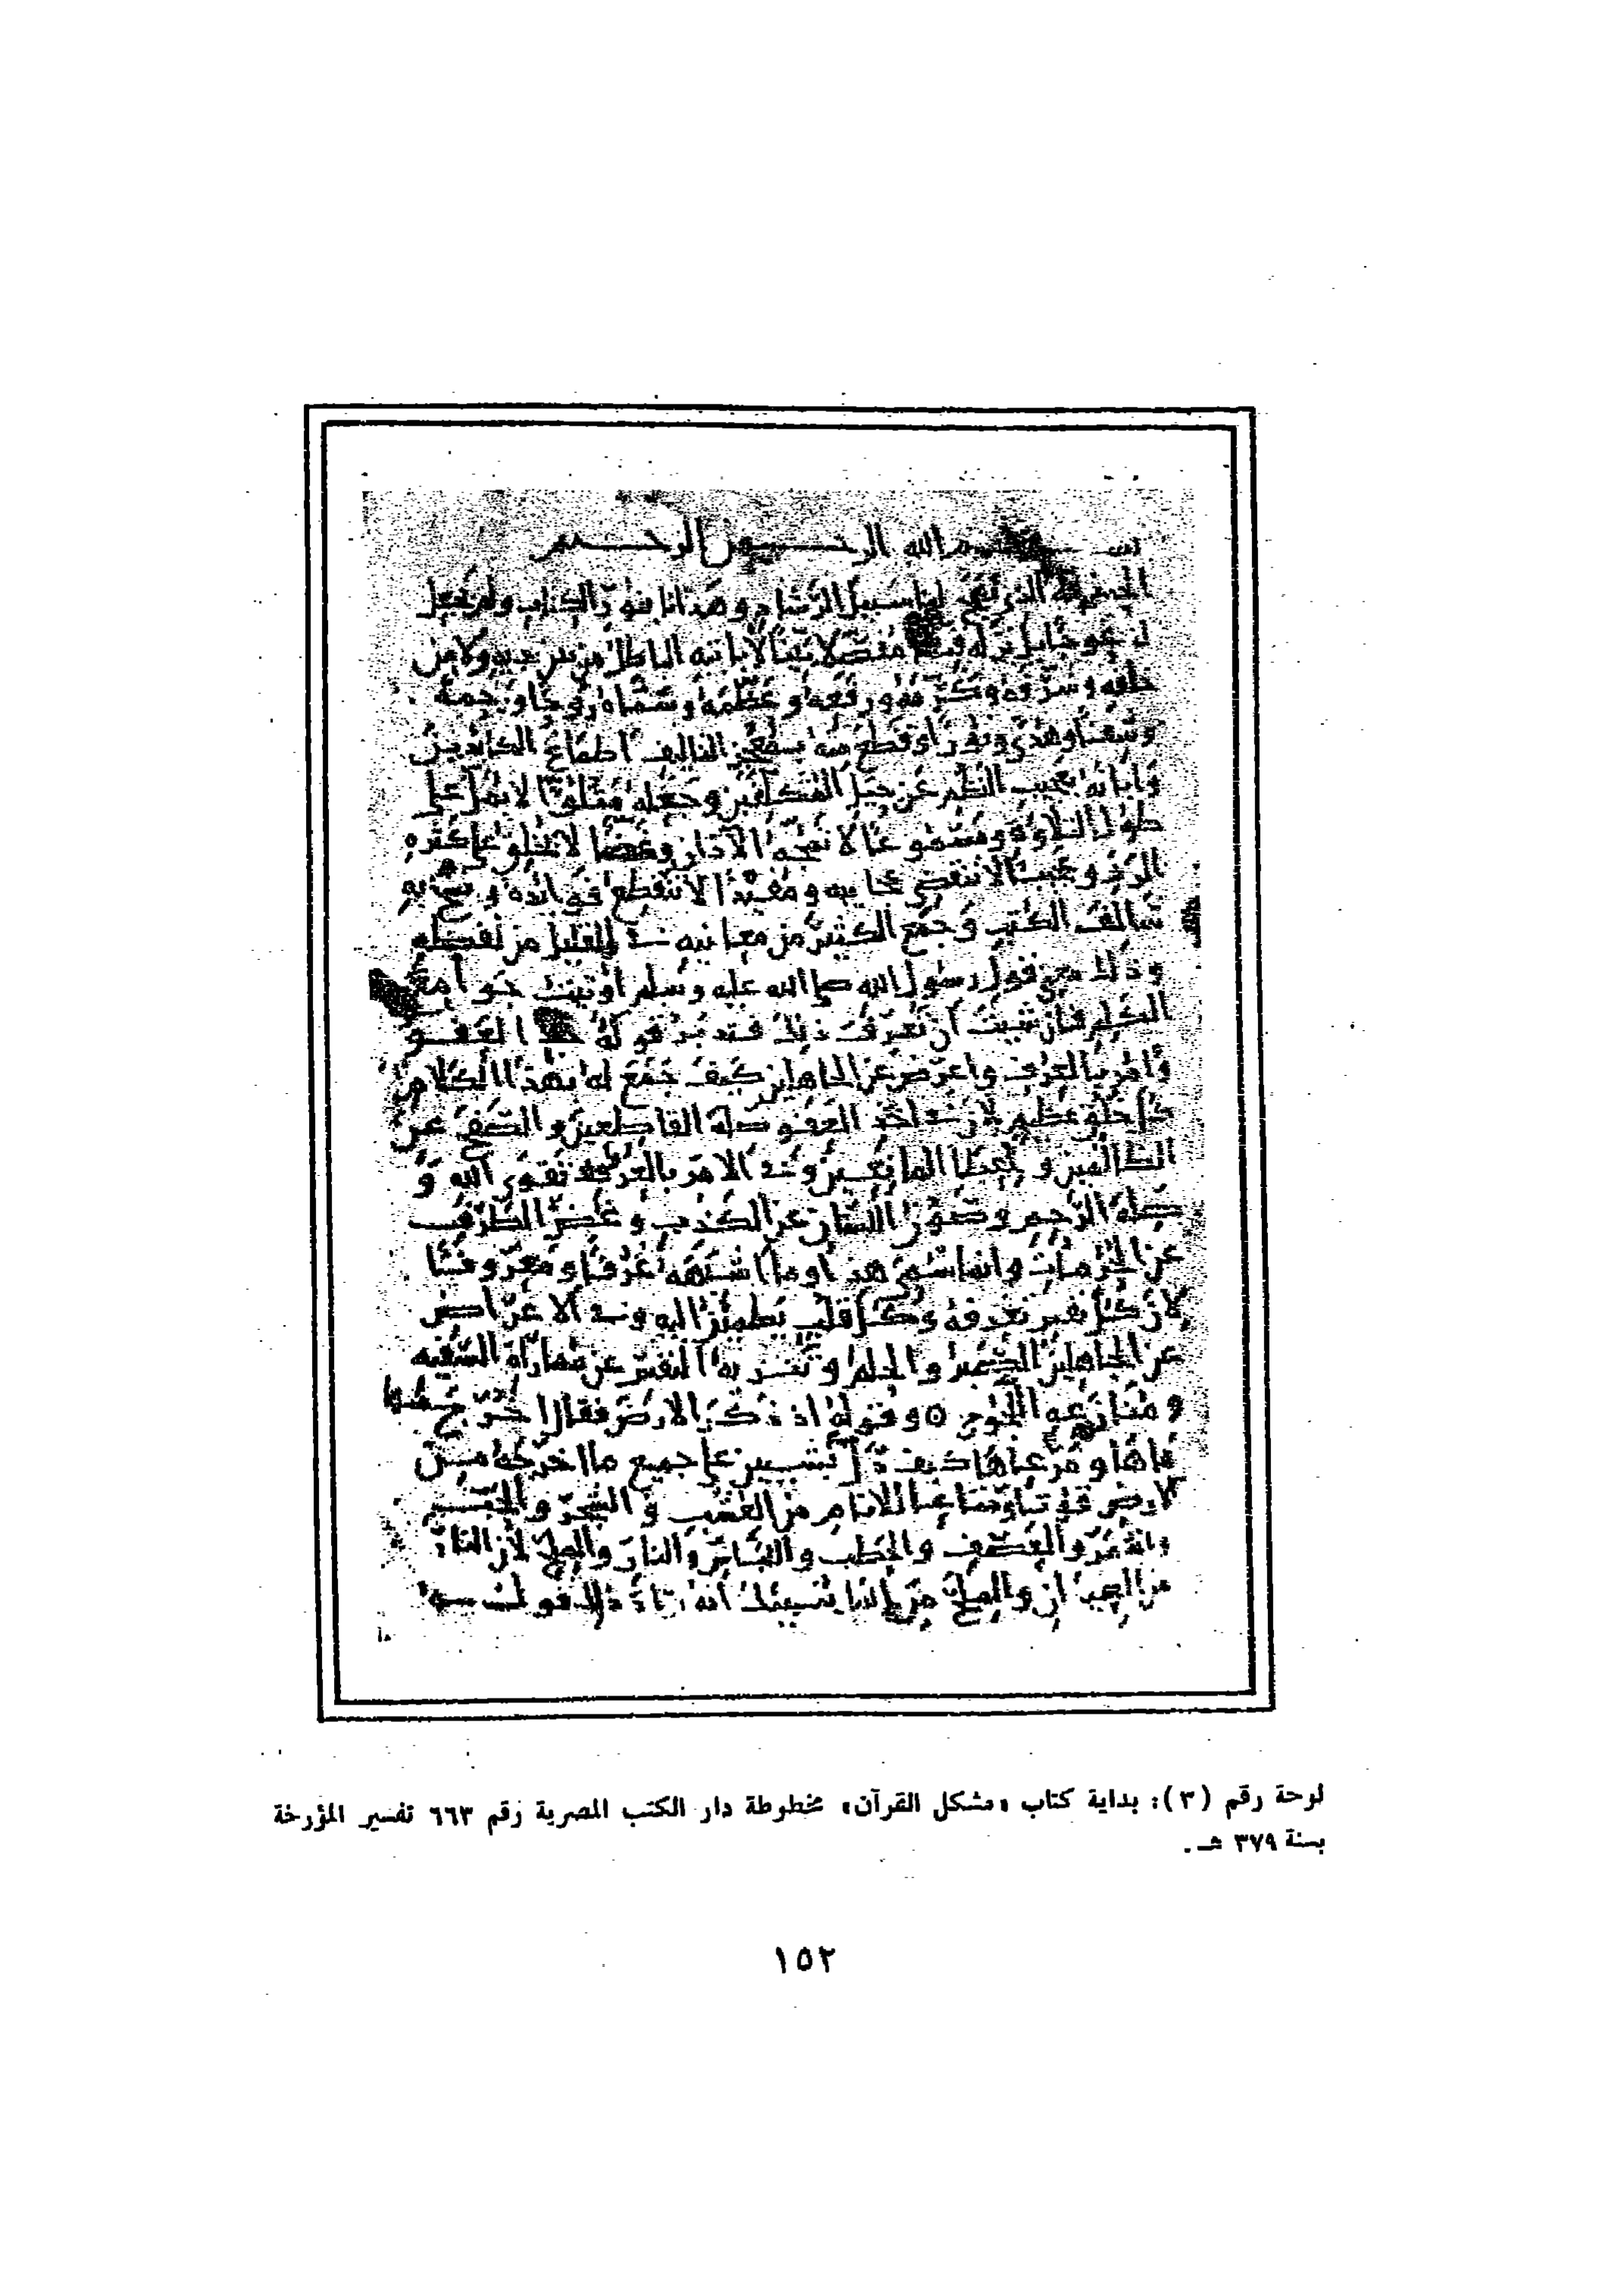 بسم الله الرحمن الرحيم
الحمد لله الذي نهج لنا سبيل الرشاد وهدانا بنور الكتاب ولم يجعل
له عوجا بل نزله قيما مفصلا بينا لا يأتيه الباطل من بين يديه ولا من
خلفه وشرفه وكرمه ورفعه وعظمه وسماه روحا ورحمة
وشفاء وهدى ونورا وقطع منه بمعجز التاليف اطماع الكائدين
وابانه بعجيب النظم عن حيل المتكلفين وجعله متلوا لا يمل على
طول التلاوة ومسموعا لا تمجه الآذان وغضا لا يخلق على كثرة
الرد وعجيبا لا تنقضي عجائبه ومفيدا لا تنقطع فوائده ونسخ به
سالف الكتب وجمع الكثير من معانيه في القليل من لفظه
وذلك معنى قول رسول الله صلى الله عليه وسلم أوتيت جوامع
الكلم فان شئت أن تعرف ذلك فتدبر قوله خذ العفو
وأمر بالعرف وأعرض عن الجاهلين كيف جمع له بهذا الكلام
كل خلق عظيم لأن في اخذ العفو صلة القاطعين والصفح عن
الظالمين وإعطا المانعين وفي الامر بالعرف تقوى الله و
صلة الرحم وصون اللسان عن الكذب وغض الطرف
عن الحرمات وانما سمي هذا وما أشبهه عرفا ومعروفا
لان كل نفس تعرفه وكل قلب يطمئن اليه وفي الاعراض
عن الجاهلين الصبر والحلم وتنزيه النفس عن مماراة السفيه
ومنازعة اللجوج ٥ وقوله اذ ذكر الارض فقال اخرج منها
ماءها ومرعاها كيف دل بشيئين على جميع ما اخرجه من
الارض قوتا ومتاعا للانام من العشب والشجر والحب
والثمر والعصف والحطب واللباس والنار والملح لأن النار
من العيدان والملح من الماء
لوحة رقم (٣): بداية كتاب «مشكل القرآن» مخطوطة دار الكتب المصرية رقم ٦٦٣ تفسير المؤرخة
بسنة ٣٧٩ هـ.
١٥٢